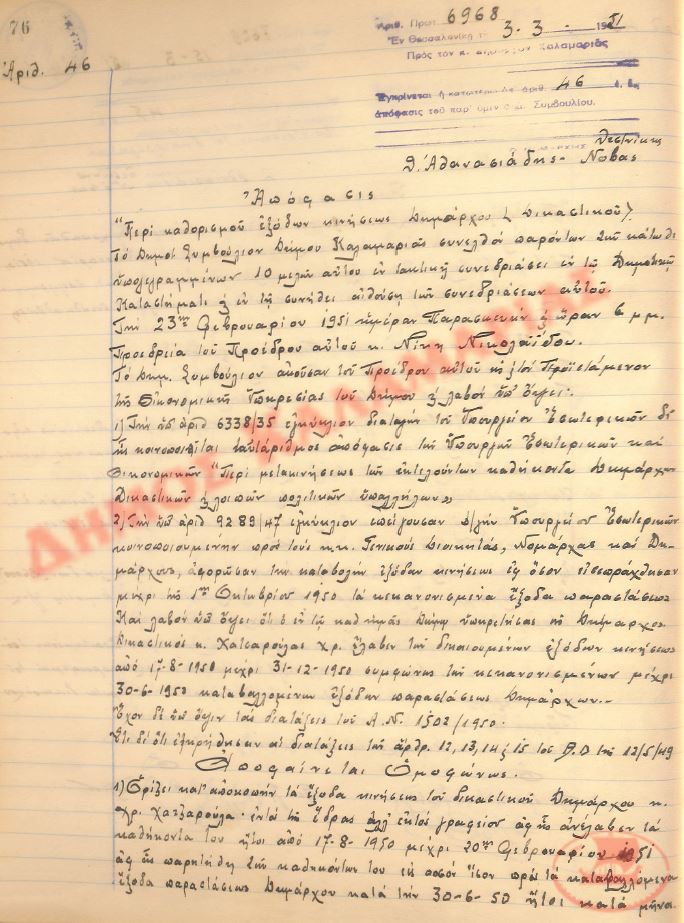 76
Ἀριθ. 46
Ἀριθ. Πρωτ. 6968
Ἐν Θεσσαλονίκῃ τῇ 3-3-1951
Πρὸς τὸν κ. Δήμαρχον Καλαμαριᾶς
Ἐγκρίνεται ἡ κατωτέρω ὑπ' ἀριθ. 46
ἀπόφασις τοῦ παρ' ὑμῖν Δημ. Συμβουλίου.
Θεσ/νίκης
Δ. Ἀθανασιάδης - Νόβας
Ἀπόφασις
"Περὶ καθορισμοῦ ἐξόδων κινήσεως Δημάρχου (Δικαστικοῦ).
Τὸ Δημοτ. Συμβούλιον Δήμου Καλαμαριᾶς συνελθὸν παρόντων τῶν κάτωθι
ὑπογεγραμμένων 10 μελῶν αὐτοῦ ἐν τακτικῇ συνεδριάσει ἐν τῷ Δημοτικῷ
Καταστήματι & ἐν τῇ συνήθει αἰθούσῃ τῶν συνεδριάσεων αὐτοῦ.
Τὴν 23ην Φεβρουαρίου 1951 ἡμέραν Παρασκευὴν & ὥραν 6 μ.μ.
Προεδρίᾳ τοῦ Προέδρου αὐτοῦ κ. Νίκη Νικολαΐδου.
Τὸ Δημ. Συμβούλιον ἀκοῦσαν τοῦ Προέδρου αὐτοῦ κὴ τὸν Προϊστάμενον
τῆς Οἰκονομικῆς Ὑπηρεσίας τοῦ Δήμου & λαβὸν ὑπ' ὄψει:
1) Τὴν ὑπ' ἀριθ 6338/35 ἐγκύκλιον διαταγὴν τοῦ Ὑπουργείου Ἐσωτερικῶν δι'
ἧς κοινοποιεῖται ταὐτάριθμος ἀπόφασις τῶν Ὑπουργῶν Ἐσωτερικῶν καὶ
Οἰκονομικῶν "Περὶ μετακινήσεως τῶν ἐκτελούντων καθήκοντα Δημάρχου
Δικαστικῶν & λοιπῶν πολιτικῶν ὑπαλλήλων,,
2) Τὴν ὑπ' ἀριθ 9289/47 ἐγκύκλιον ἐπείγουσαν δ/γὴν Ὑπουργείου Ἐσωτερικῶν
κοινοποιουμένην πρὸς τοὺς κ.κ. Γενικοὺς Διοικητάς, Νομάρχας καὶ Δη-
μάρχους, ἀφορῶσαν τὴν καταβολὴν ἐξόδων κινήσεως ἐφ' ὅσον εἰσεπράχθησαν
μέχρι τῆς 1ης Ὀκτωβρίου 1950 τὰ κεκανονισμένα ἔξοδα παραστάσεως
Καὶ λαβὸν ὑπ' ὄψει ὅτι ὁ ἐν τῷ καθ' ἡμᾶς Δήμῳ ὑπηρετήσας ὡς Δήμαρχος
Δικαστικὸς κ. Χατζαρούλας Χρ. ἔλαβεν τῶν δικαιουμένων ἐξόδων κινήσεως
ἀπὸ 17-8-1950 μέχρι 31-12-1950 συμφώνως τῶν κεκανονισμένων μέχρι
30-6-1950 καταβαλλομένων ἐξόδων παραστάσεως Δημάρχων.-
Ἔχον δὲ ὑπ' ὄψιν τὰς διατάξεις τοῦ Α.Ν. 1502/1950.
Ἔτι δὲ ὅτι ἐτηρήθησαν αἱ διατάξεις τῶν ἄρθρ. 12, 13, 14 & 15 τοῦ Β.Δ τῆς 12/5/49
Ἀποφαίνεται Ὁμοφώνως.
1) Ὁρίζει κατ' ἀποκοπὴν τὰ ἔξοδα κινήσεως τοῦ δικαστικοῦ Δημάρχου κ.
Χρ. Χατζαρούλα ἐντὸς τῆς ἕδρας ἀλλ' ἐκτὸς γραφείου ἀφ' ἧς ἀνέλαβεν τὰ
καθήκοντά του ἤτοι ἀπὸ 17-8-1950 μέχρι 20ης Φεβρουαρίου 1951
ἀφ' ἧς παρῃτήθη τῶν καθηκόντων του εἰς ποσὸν ἴσον πρὸς τὰ καταβαλλόμενα
ἔξοδα παραστάσεως Δημάρχου κατὰ τὴν 30-6-50 ἤτοι κατὰ μῆνα